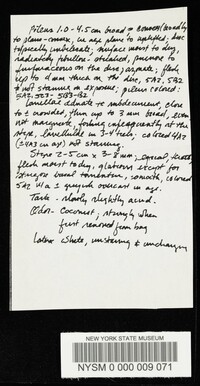 Pileus 1.0 - 4.5 cm broad ± convex, broadly
to plano-convex, in age plane to uplifted, disc
typically umbonate; surface moist to dry,
radiately fibrillose-striated,
on the disc; azonate; flesh
up to 4 mm thick on the disc, 5A2, 5B2
± not staining on exposure; pileus colored
5A3-5C3 - 5B3-5C2
Lamellae adnate to subdecurrent, close
to ± crowded, thin up to 3 mm broad, even
not marginate, forking infrequently at the
stipe, lamellulae in 3-4 tiers, colored 4A2
(±4A3 in age) not staining.
Stipe 2-5 cm x 3-8 mm; equal,
flesh moist to dry, glabrous except for
strigose basal tomentum, smooth, colored
5A2 4/a ± grayish overcast in age.
Taste - slowly slightly acrid.
Odor - Coconut, strongly when
first removed from bag
Latex white, unstaining & unchanging
NEW YORK STATE MUSEUM
NYSM 0 000 009 071